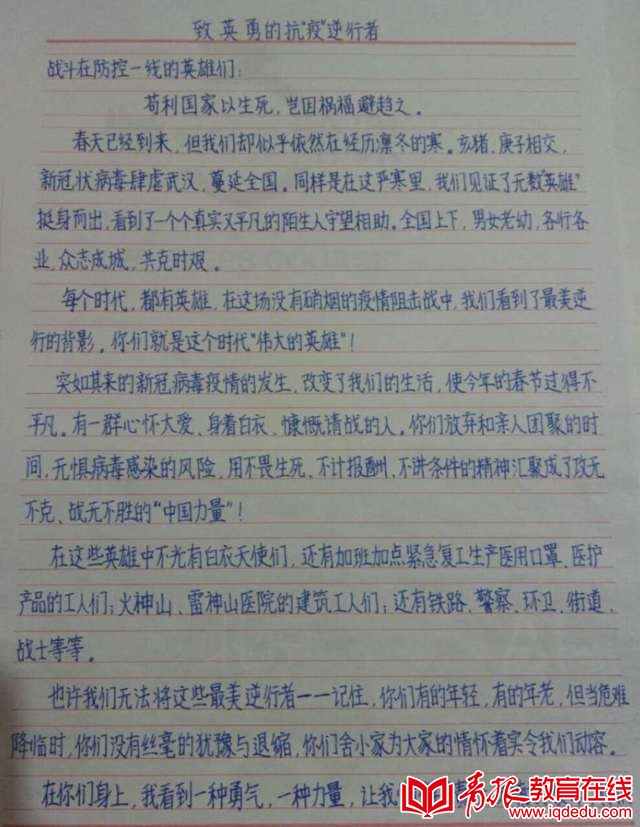 致英勇的抗“疫”逆行者
战斗在防控一线的英雄们：
苟利国家以生死，岂因祸福避趋之。
春天已经到来，但我们却似乎依然在经历凛冬的寒。亥猪、庚子相交，
新冠状病毒肆虐武汉，蔓延全国。同样是在这严寒里，我们见证了无数“英雄”
挺身而出，看到了一个个真实又平凡的陌生人守望相助。全国上下，男女老幼，各行各
业，众志成城，共克时艰。
每个时代，都有英雄，在这场没有硝烟的疫情阻击战中，我们看到了最美逆
行的背影。你们就是这个时代“伟大的英雄”！
突如其来的新冠病毒疫情的发生，改变了我们的生活，使今年的春节过得不
平凡。有一群心怀大爱、身着白衣、慷慨请战的人。你们放弃和亲人团聚的时
间，无惧病毒感染的风险，用不畏生死、不计报酬、不讲条件的精神汇聚成了攻无
不克、战无不胜的“中国力量”！
在这些英雄中不光有白衣天使们，还有加班加点紧急复工生产医用口罩、医护
产品的工人们；火神山、雷神山医院的建筑工人们；还有铁路、警察、环卫、街道、
战士等等。
也许我们无法将这些最美逆行者一一记住，你们有的年轻，有的年老，但当危难
降临时，你们没有丝毫的犹豫与退缩，你们舍小家为大家的情怀着实令我们动容。
在你们身上，我看到一种勇气，一种力量，让我
青报教育在线
www.iqdedu.com